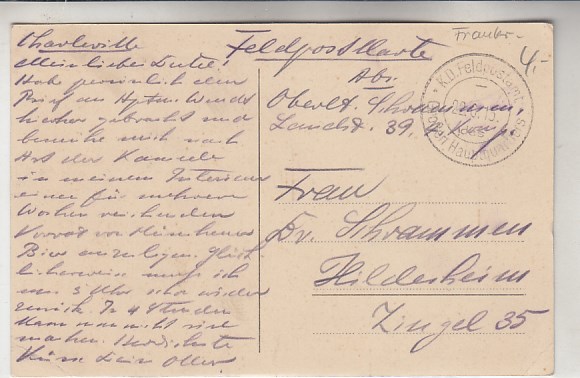 Charleville
Mein lieber Dutzi!
Habe persönlich den
Brief an Hptm. Wundt
hierher gebracht und
bemühe mich nach
Art der Kamele
in meinem Interieur
einen für mehrere
Wochen reichenden
Vorrat von Münchener
Bier anzulegen. Glück-
licherweise muß ich
um 3 Uhr schon wieder
zurück. In 4 Stunden
kann man nicht viel
machen. Herzlichste
Küsse Dein Otto
Feldpostkarte
Abs.
Oberlt. Schrammen,
Landst. 39, 2. Komp.
K.D. Feldpostamt
des Großen Hauptquartiers
Frankr.
4.-
Frau
Dr. Schrammen
Hildesheim
Zingel 35